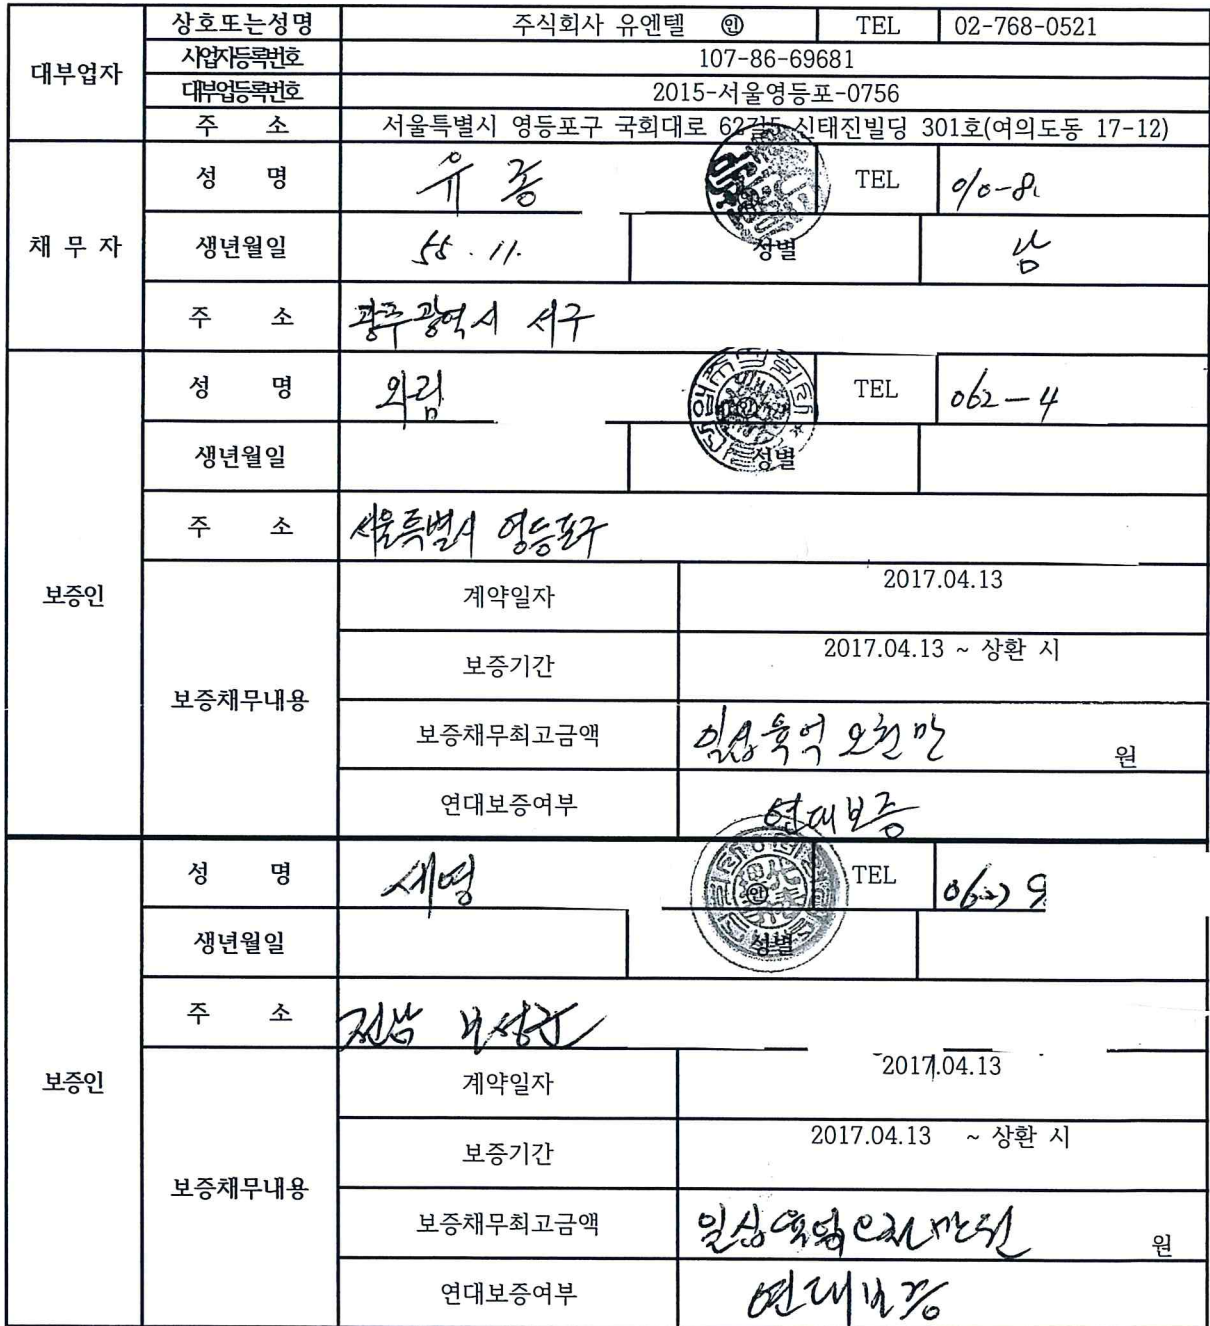 대부업자
상호또는성명 주식회사 유엔텔 ㊞ TEL 02-768-0521
사업자등록번호 107-86-69681
대부업등록번호 2015-서울영등포-0756
주 소 서울특별시 영등포구 국회대로 62길5 신태진빌딩 301호(여의도동 17-12)
채 무 자
성 명 유 종 TEL 010-8
생년월일 55. 11. 성별 남
주 소 광주광역시 서구
보증인
성 명 외림 TEL 062-4
생년월일 성별
주 소 서울특별시 영등포구
보증채무내용
계약일자 2017.04.13
보증기간 2017.04.13 ~ 상환 시
보증채무최고금액 일십육억 오천만 원
연대보증여부 연대보증
보증인
성 명 세영 ㊞ TEL 062) 9
생년월일 성별
주 소 전남 보성군
보증채무내용
계약일자 2017.04.13
보증기간 2017.04.13 ~ 상환 시
보증채무최고금액 일십육억오천만원 원
연대보증여부 연대보증